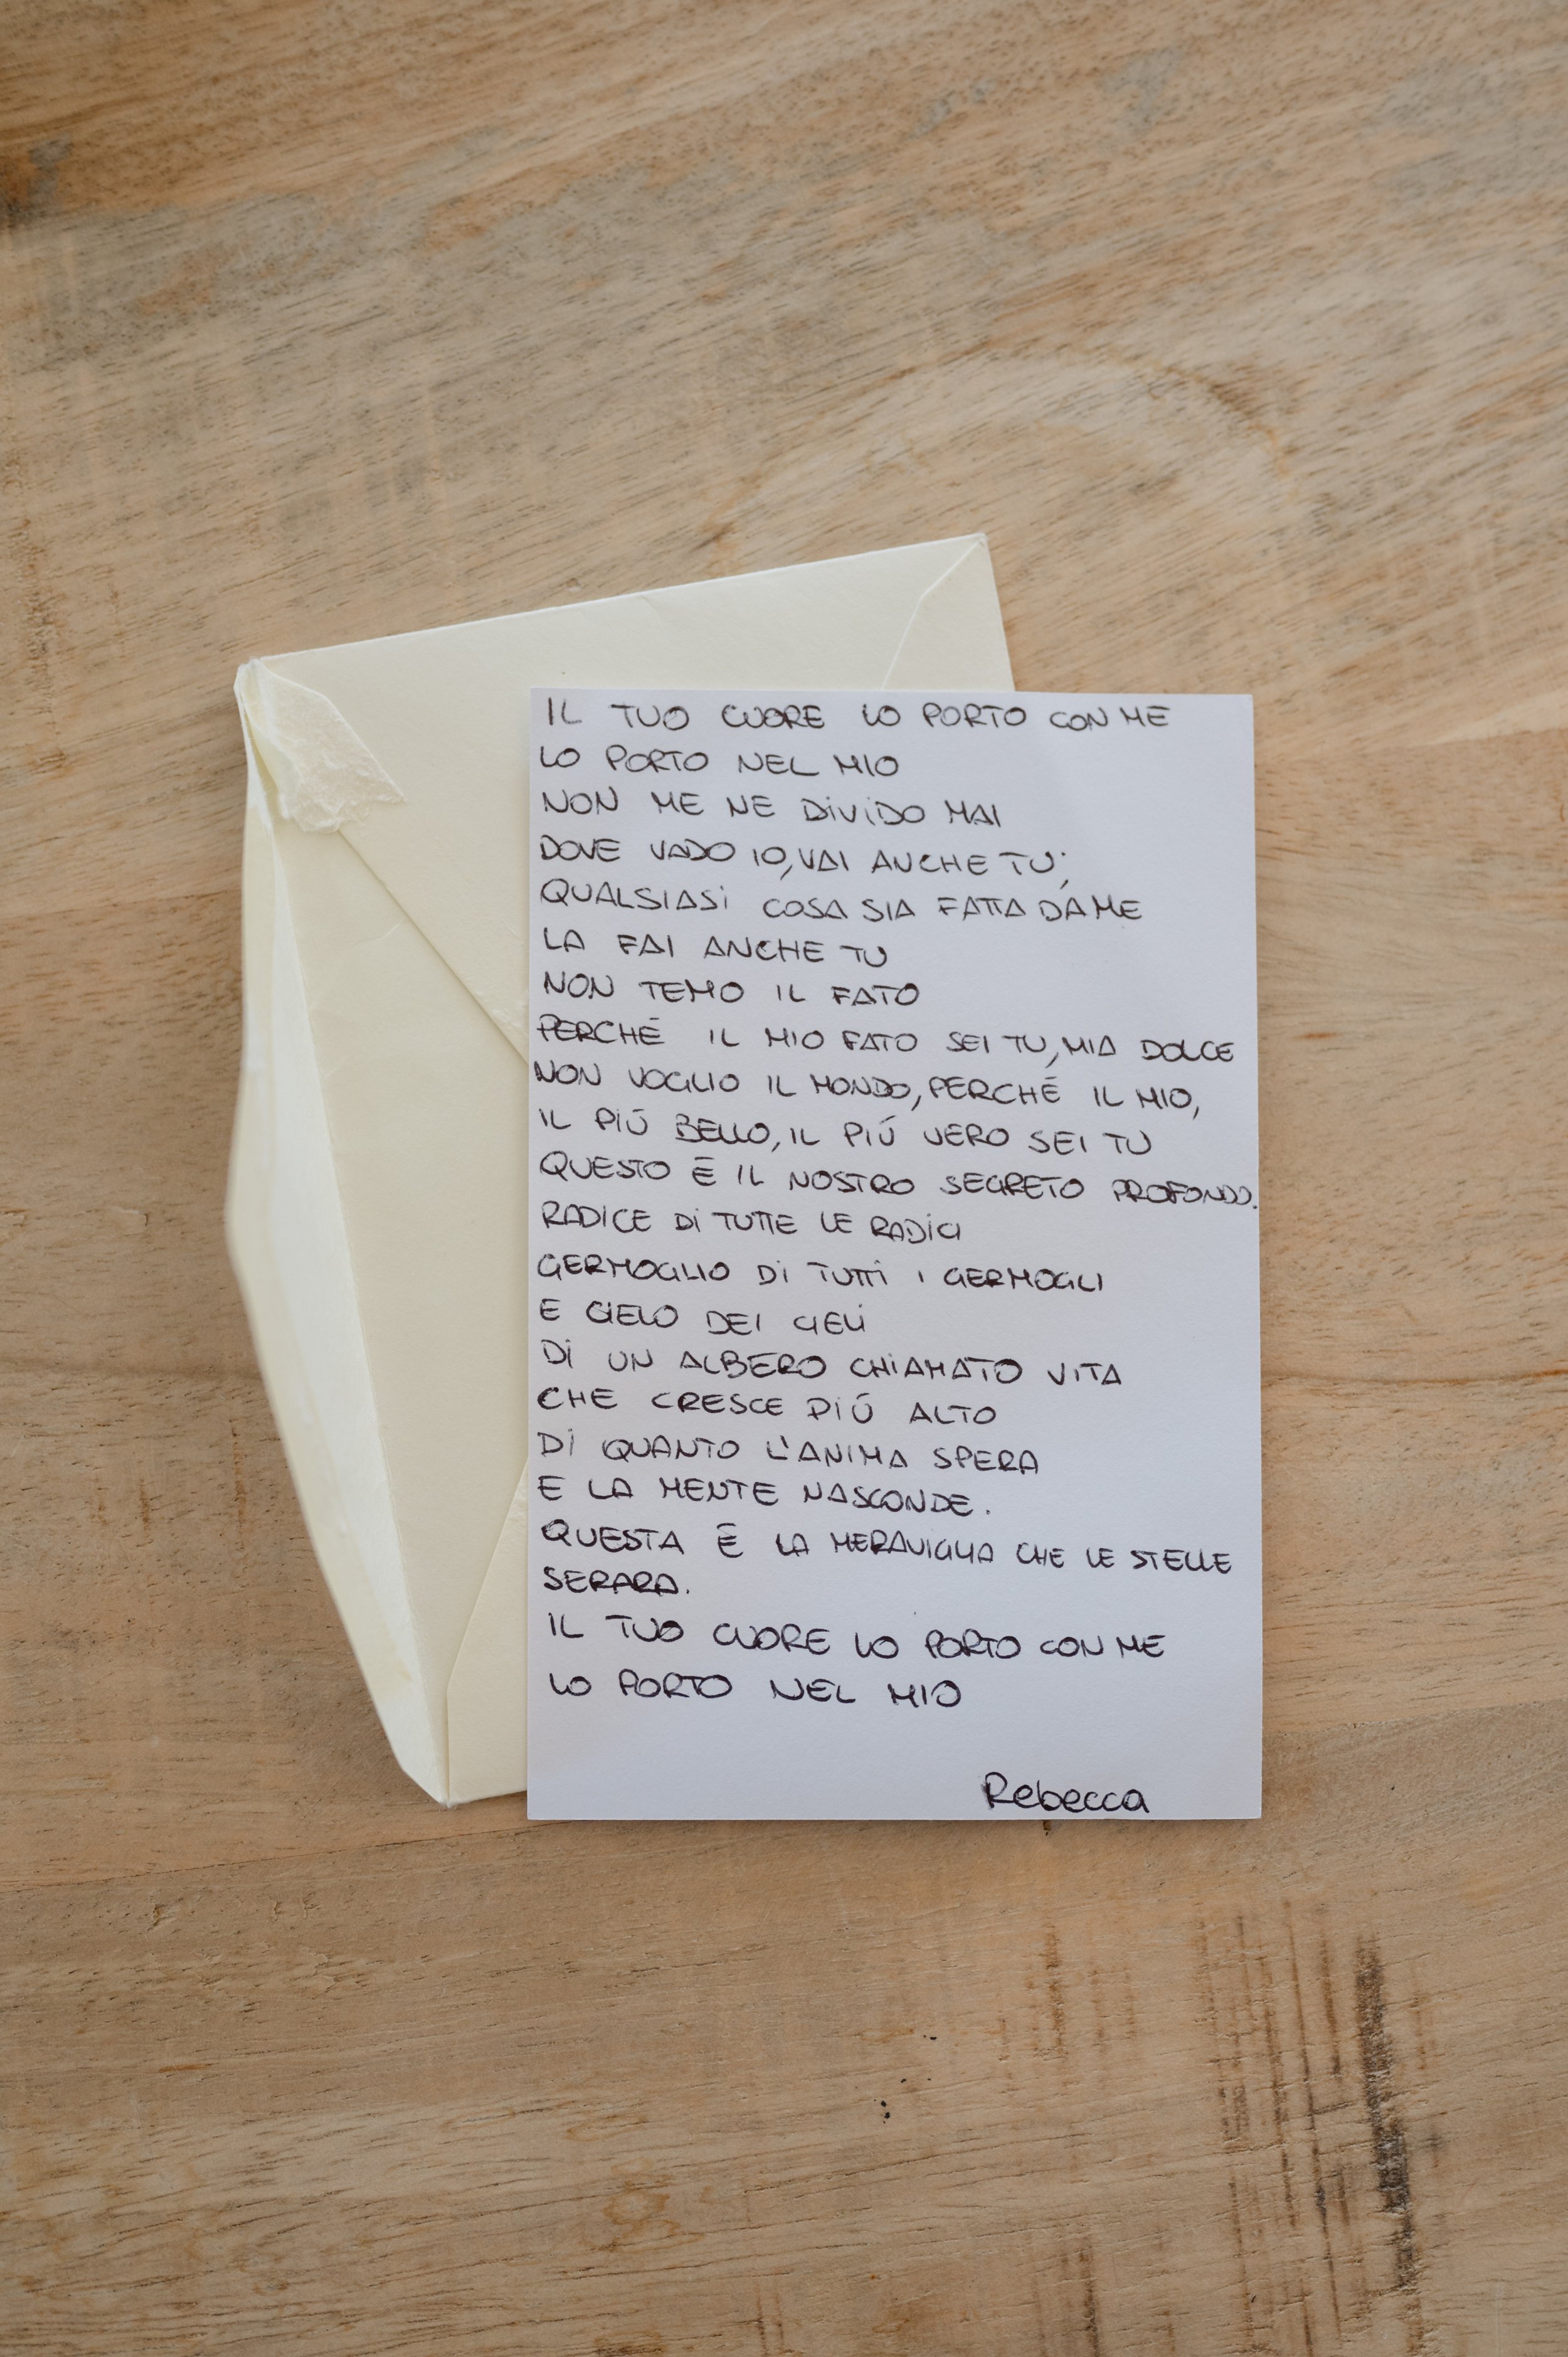 IL TUO CUORE LO PORTO CON ME
LO PORTO NEL MIO
NON ME NE DIVIDO MAI
DOVE VADO IO, VAI ANCHE TU;
QUALSIASI COSA SIA FATTA DA ME
LA FAI ANCHE TU
NON TEMO IL FATO
PERCHÉ IL MIO FATO SEI TU, MIA DOLCE
NON VOGLIO IL MONDO, PERCHÉ IL MIO,
IL PIÚ BELLO, IL PIÚ VERO SEI TU
QUESTO É IL NOSTRO SEGRETO PROFONDO.
RADICE DI TUTTE LE RADICI
GERMOGLIO DI TUTTI I GERMOGLI
E CIELO DEI CIELI
DI UN ALBERO CHIAMATO VITA
CHE CRESCE PIÚ ALTO
DI QUANTO L'ANIMA SPERA
E LA MENTE NASCONDE.
QUESTA É LA MERAVIGLIA CHE LE STELLE
SERARA.
IL TUO CUORE LO PORTO CON ME
LO PORTO NEL MIO
Rebecca